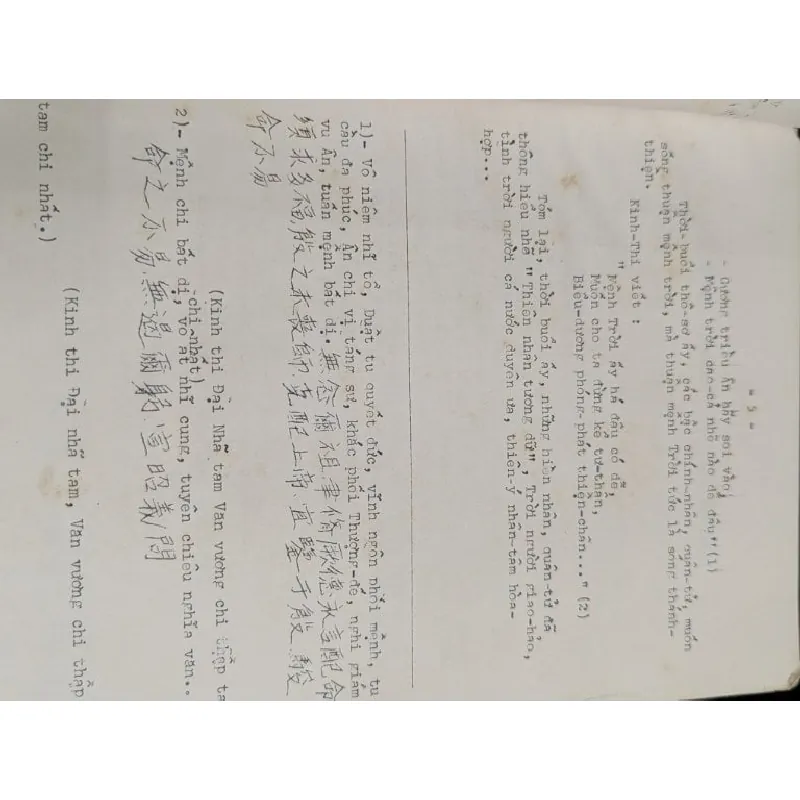 - 5 -
- Gương triều Ân hãy soi vào;
- Mệnh trời cao-cả nhẽ nào dễ đâu" (1)
Thời-buổi thô-sơ ấy, các bậc chính-nhân, quân-tử, muốn
sống thuận mệnh trời, mà thuận mệnh Trời tức là sống thánh-
thiện.
Kinh-Thi viết :
"Mệnh Trời ấy há đâu có dễ,
Muốn cho ta đừng kể tư-thân,
Biểu-dương phóng-phát thiện-chân..." (2)
Tóm lại, thời buổi ấy, những hiền nhân, quân-tử đã
thông hiểu nhẽ " Thiên nhân tương dữ", Trời người giao-hảo,
tình trời người cá nước duyên ưa, thiên-ý nhân-tâm hòa-
hợp...
1)- Vô niệm nhĩ tổ, Duật tu quyết đức, vĩnh ngôn phối mệnh, tu
cầu đa phúc, Ân chi vị táng sư, khắc phối Thượng-đế, nghi giám
vu Ân, tuấn mệnh bất dị. 無念爾祖聿脩厥德永言配命
須求多福殷之未喪師克配上帝宜鑒于殷駿
命不易
(Kinh thi Đại Nhã tam Văn vương chi thập ta
chi nhất)
2)- Mệnh chi bất dị, vô át nhĩ cung, tuyên chiêu nghĩa văn..
命之不易無遏爾躬宣昭義問
(Kinh thi Đại nhã tam, Văn vương chi thập
tam chi nhất.)